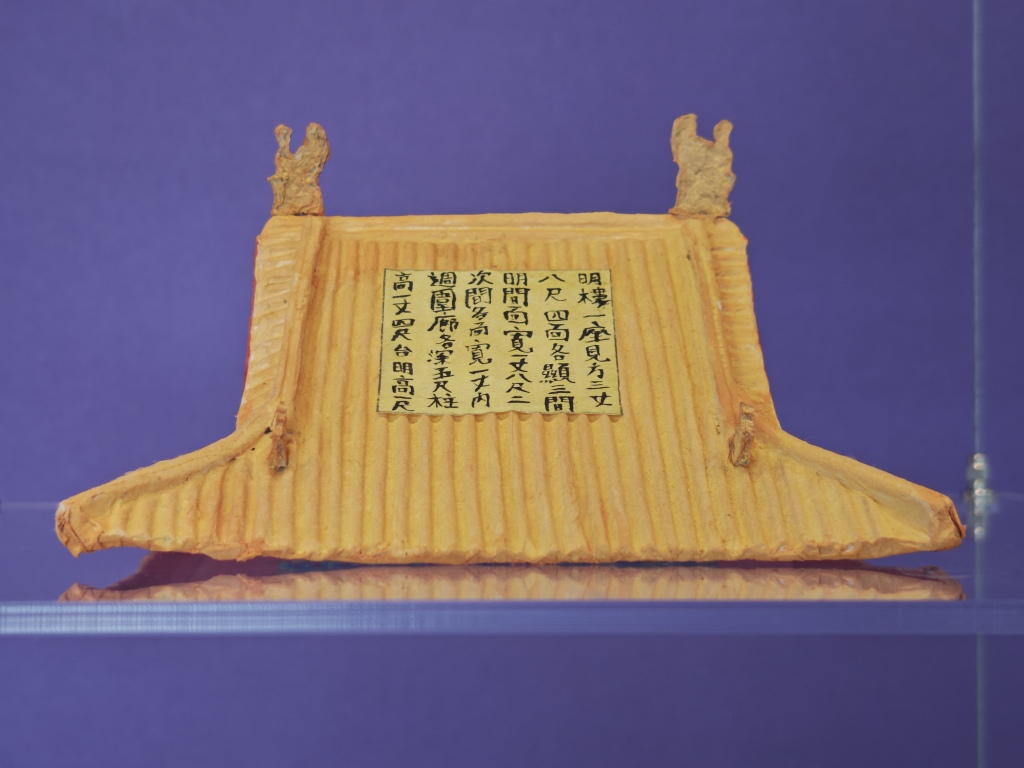 明樓一座見方三丈
八尺四面各顯三間
明間面寬一丈八尺二
次間各面寬一丈內
週圍廊各深五尺柱
高一丈四尺台明高一尺